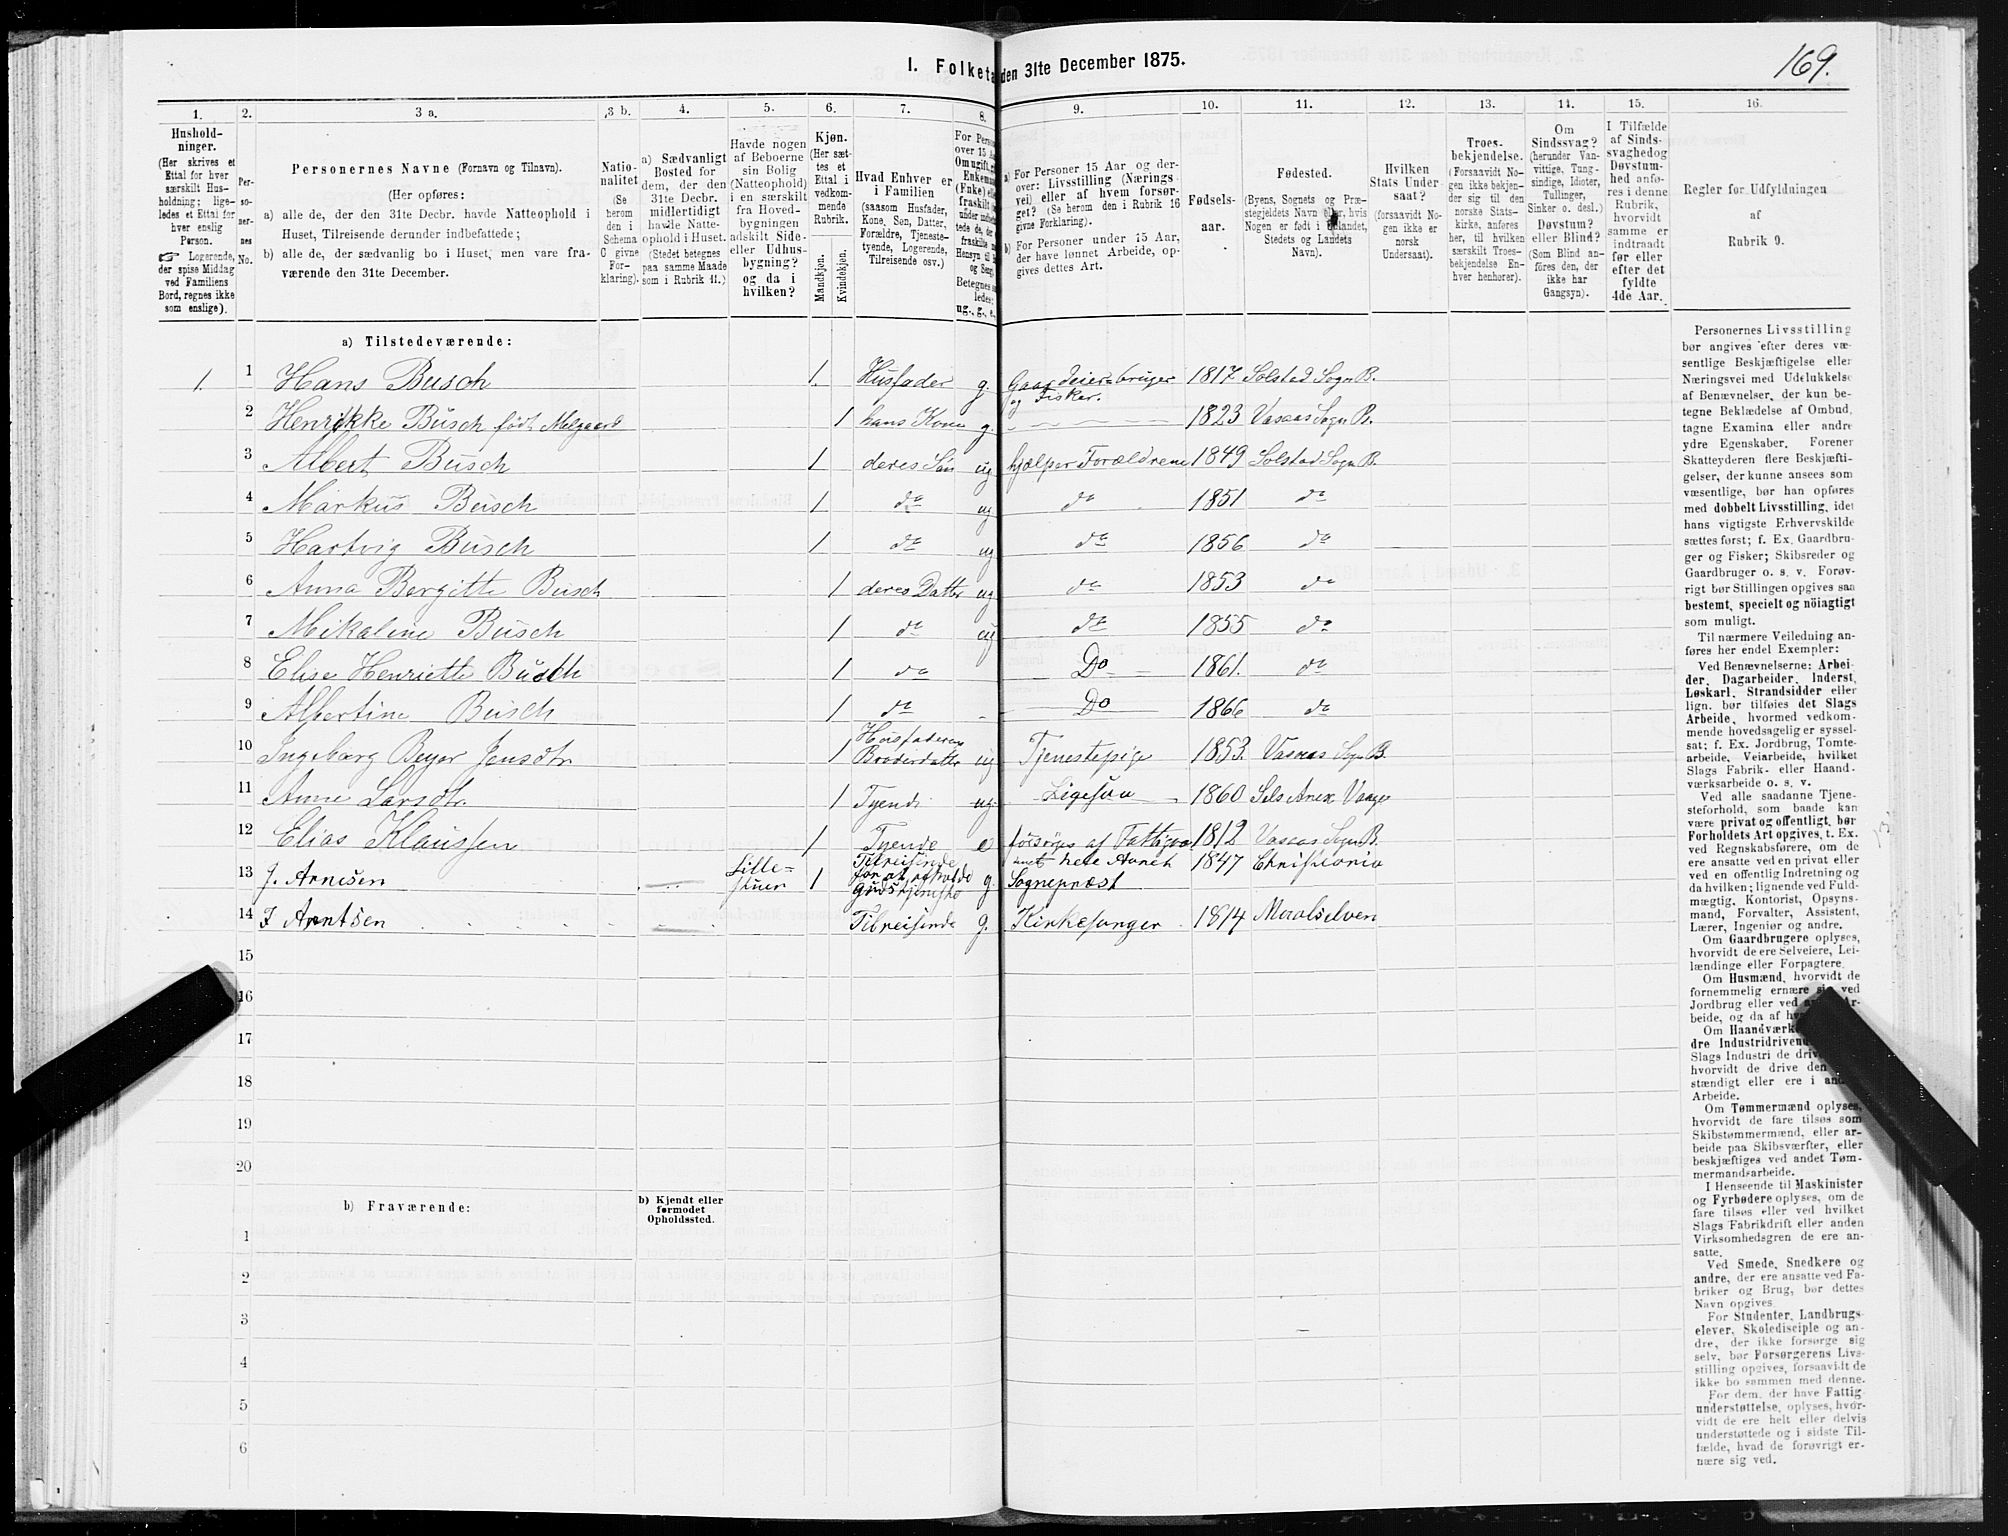 169.
I. Folketa den 31te December 1875.
1. 2. 3 a. 3 b. 4. 5. 6. 7. 8. 9. 10. 11. 12. 13. 14. 15. 16.
Hushold-
ninger.
(Her skrives et
Ettal for hver
særskilt Hus-
holdning; lige-
ledes et Ettal for
hver enslig
Person.
☞ Logerende,
der spise Middag
ved Familiens
Bord, regnes ikke
som enslige).
Per-
so-
ner-
nes
No.
Personernes Navne (Fornavn og Tilnavn).
(Her opføres:
a) alle de, der den 31te Decbr. havde Natteophold i
Huset, Tilreisende derunder indbefattede;
b) alle de, der sædvanlig bo i Huset, men vare fra-
værende den 31te December.
Natio-
nalitet
(Se
herom
den i
Schema
C givne
For-
klaring).
a) Sædvanligt
Bosted for
dem, der den
31te Decbr.
midlertidigt
havde Natte-
ophold i Huset.
(Stedet betegnes
paa samme Maade
som i Rubrik 11.)
Havde nogen
af Beboerne
sin Bolig
(Natteophold)
i en særskilt
fra Hoved-
bygningen
adskilt Side-
eller Udhus-
bygning?
og da i
hvilken?
Kjøn.
(Her sæt-
tes et
Ettal i
vedkom-
mende
Rubrik.
Mandkjøn.
Kvindekjøn.
Hvad Enhver er
i Familien
(saasom Husfader,
Kone, Søn, Datter,
Forældre, Tjeneste-
tyende, Logerende,
Tilreisende osv.)
For Perso
over 15 A
Om ugift,
Enkeman
(Fnke) el
fraskilt
Hensyn til
og Seng
Betegnes s
ledes:
ug., g., e.,
a) For Personer 15 Aar og der-
over: Livsstilling (Nærings-
vei) eller af hvem forsør-
get? (Se herom den i Rubrik 16
givne Forklaring).
b) For Personer under 15 Aar,
der have lønnet Arbeide, op-
gives dettes Art.
Fødsels-
aar.
Fødested.
(Byens, Sognets og Præ-
stegjeldets Navn eller, hvis
Nogen er født i Udlandet,
Stedets og Landets
Navn).
Hvilken
Stats Under-
saat?
(forsaavidt No-
gen ikke er
norsk
Undersaat).
Troes-
bekjendelse.
(Forsaavidt No-
gen ikke bekjen-
der sig til den
norske Stats-
kirke, anføres
her, til hvilken
særskilt Troes-
bekjendelse En-
hver henhorer).
Om
Sindssvag?
(herunder Van-
vittige, Tung-
sindige, Idioter,
Tullinger,
Sinker o. desl.)
Døvstum?
eller Blind?
(Som Blind an-
føres den, der
ikke har
Gangsyn).
I Tilfælde
af Sinds-
svaghed og
Døvstum-
hed anfø-
res i denne
Rubrik,
hvorvidt
samme er
indtraadt
før eller
efter det
fyldte
4de Aar.
Regler for Udfyldningen
af
Rubrik 9.
a) Tilstedeværende:
1 1 Hans Busch 1. Husfader g. Gaardeier=bruger og Fisker. 1817 Solstad Sogn B.
2 Henrikke Busch født Melgaard 1 hans Kone g. 1823 Vasaas Sogn B.
3 Albert Busch 1 deres Søn ug hjælper Forældrene 1849 Solstad Sogn B.
4 Markus Busch 1 do ug do 1851 do
5 Hartvig Busch 1 do ug do 1856 do
6 Anna Bergitte Busch 1 deres Datter ug do 1853 do
7 Mikaline Busch 1 do ug do 1855 do
8 Elise Henriette Busch 1 do Do 1861. do
9 Albertine Busch 1 do Do 1866 do
10 Ingebærg Beyer Jensdtr 1 Husfaderens Broderdatter ug Tjenestepige 1853. Vasaas Sogn B.
11 Anne Larsdtr. 1 Tyende ug. Ligesaa 1860
12 Elias Klaussen 1 Tyende e forsørges af 1812 Vasaas Sogn B.
13 J. Arnesen Lille=stuen 1 Tilreisende for at afholde Gudstjeneste g. Sognepræst 1847 Christiania
14 I Arntsen Tilreisende g. Kirkesanger 1814 Maalselven
15
16
17
18
19
20
b) Fraværende: b) Kjendt eller
formodet
Opholdssted.
1
2
3
4
5
6
Personernes Livsstilling
bør angives efter deres væ-
sentlige Beskjæftigelse eller
Næringsvei med Udelukkelse
af Benævnelser, der kun be-
tegne Beklædelse af Ombud,
tagne Examina eller andre
ydre Egenskaber. Forener
Skatteyderen flere Beskjæfti-
gelser, der kunne ansees som
væsentlige, bør han opføres
med dobbelt Livsstilling, idet
hans vigtigste Erhvervskilde
sættes først; f. Ex. Gaardbru-
ger og Fisker; Skibsreder og
Gaardbruger o. s. v. Forøv-
rigt bør Stillingen opgives saa
bestemt, specielt og nöiagtigt
som muligt.
Til nærmere Veiledning an-
føres her endel Exempler:
Ved Benævnelserne: Arbei-
der, Dagarbeider, Inderst,
Løskarl, Strandsidder eller
lign. bør tilføies det Slags
Arbeide, hvormed vedkom-
mende hovedsagelig er syssel-
sat; f. Ex. Jordbrug, Tomte-
arbeide, Veiarbeide, hvilket
Slags Fabrik- eller Haand-
værksarbeide o. s. v.
Ved alle saadanne Tjene-
steforhold, som baade kan
være privat og offentligt, bør
Forholdets Art opgives, t. Ex.
ved Regnskabsførere, om de
ere ansatte ved en privat eller
ved en offentlig Indretning og
da hvilken; lignende ved Fuld-
mægtig, Kontorist, Opsyns-
mand, Forvalter, Assistent,
Lærer, Ingeniør og andre.
Om Gaardbrugere oplyses,
hvorvidt de ere Selveiere, Lei-
lændinge eller Forpagtere.
Om Husmænd, hvorvidt de
fornemmelig ernære sig ved
Jordbrug eller ved Ar-
beide, og da af
Om Haandværk
dre Industridrivend
Slags Industri de driv
hvorvidt de drive den
stændigt eller ere i and
Arbeide.
Om Tømmermænd oplyses,
hvorvidt de fare tilsøs som
Skibstømmermænd, eller ar-
beide paa Skibsværfter, eller
beskjæftiges ved andet Tøm-
mermandsarbeide.
I Henseende til Maskinister
og Fyrbødere oplyses, om de
fare tilsøs eller ved hvilket
Slags Fabrikdrift eller anden
Virksomhedsgren de ere an-
satte.
Ved Smede, Snedkere og
andre, der ere ansatte ved Fa-
briker og Brug, bør dettes
Navn opgives.
For Studenter, Landbrugs-
elever, Skoledisciple og an-
dre, der ikke forsørge sig
selv, bør Forsørgerens Livs-
stilling opgives, forsaavidt de
ikke bo sammen med denne.
For dem, der have Fattig-
understøttelse, oplyses, hvor-
vidt de ere helt eller delvis
understøttede og i sidste Til-
fælde, hvad de forøvrigt er-
nære sig ved.